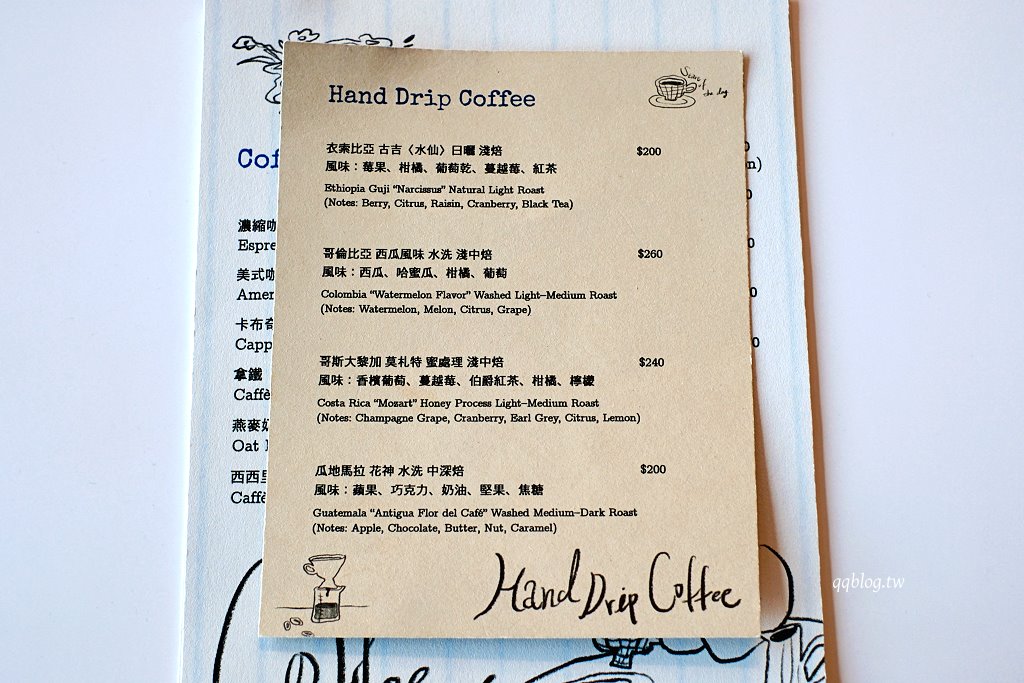 Hand Drip Coffee
衣索比亞 古吉〈水仙〉日曬 淺焙 $200
風味：莓果、柑橘、葡萄乾、蔓越莓、紅茶
Ethiopia Guji “Narcissus” Natural Light Roast
(Notes: Berry, Citrus, Raisin, Cranberry, Black Tea)
哥倫比亞 西瓜風味 水洗 淺中焙 $260
風味：西瓜、哈蜜瓜、柑橘、葡萄
Colombia “Watermelon Flavor” Washed Light–Medium Roast
(Notes: Watermelon, Melon, Citrus, Grape)
哥斯大黎加 莫札特 蜜處理 淺中焙 $240
風味：香檳葡萄、蔓越莓、伯爵紅茶、柑橘、檸檬
Costa Rica “Mozart” Honey Process Light–Medium Roast
(Notes: Champagne Grape, Cranberry, Earl Grey, Citrus, Lemon)
瓜地馬拉 花神 水洗 中深焙 $200
風味：蘋果、巧克力、奶油、堅果、焦糖
Guatemala “Antigua Flor del Café” Washed Medium–Dark Roast
(Notes: Apple, Chocolate, Butter, Nut, Caramel)
Hand Drip Coffee
Cof
濃縮咖
Espre
美式咖
Amer
卡布奇
Capp
拿鐵
Caffè
燕麥奶
Oat
西西里
Caffè
qqblog.tw